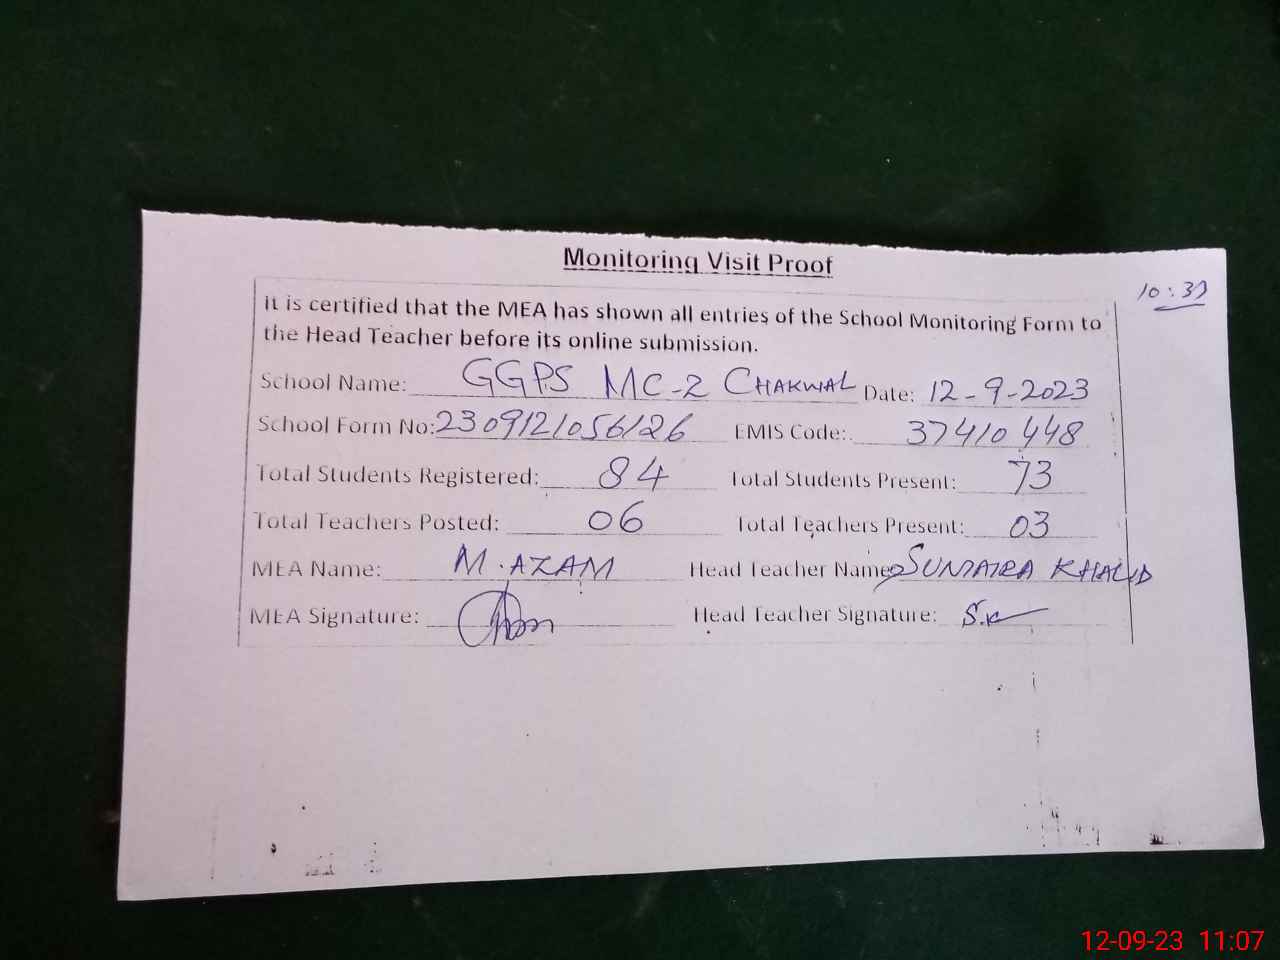 Monitoring Visit Proof
10:37
It is certified that the MEA has shown all entries of the School Monitoring Form to
the Head Teacher before its online submission.
School Name: GGPS MC-2 CHAKWAL Date: 12-9-2023
School Form No: 2309121056126 EMIS Code: 37410448
Total Students Registered: 84 Total Students Present: 73
Total Teachers Posted: 06 Total Teachers Present: 03
MEA Name: M.AZAM Head Teacher Name: SUMAIRA KHALID
MEA Signature: Head Teacher Signature: S.K
12-09-23 11:07